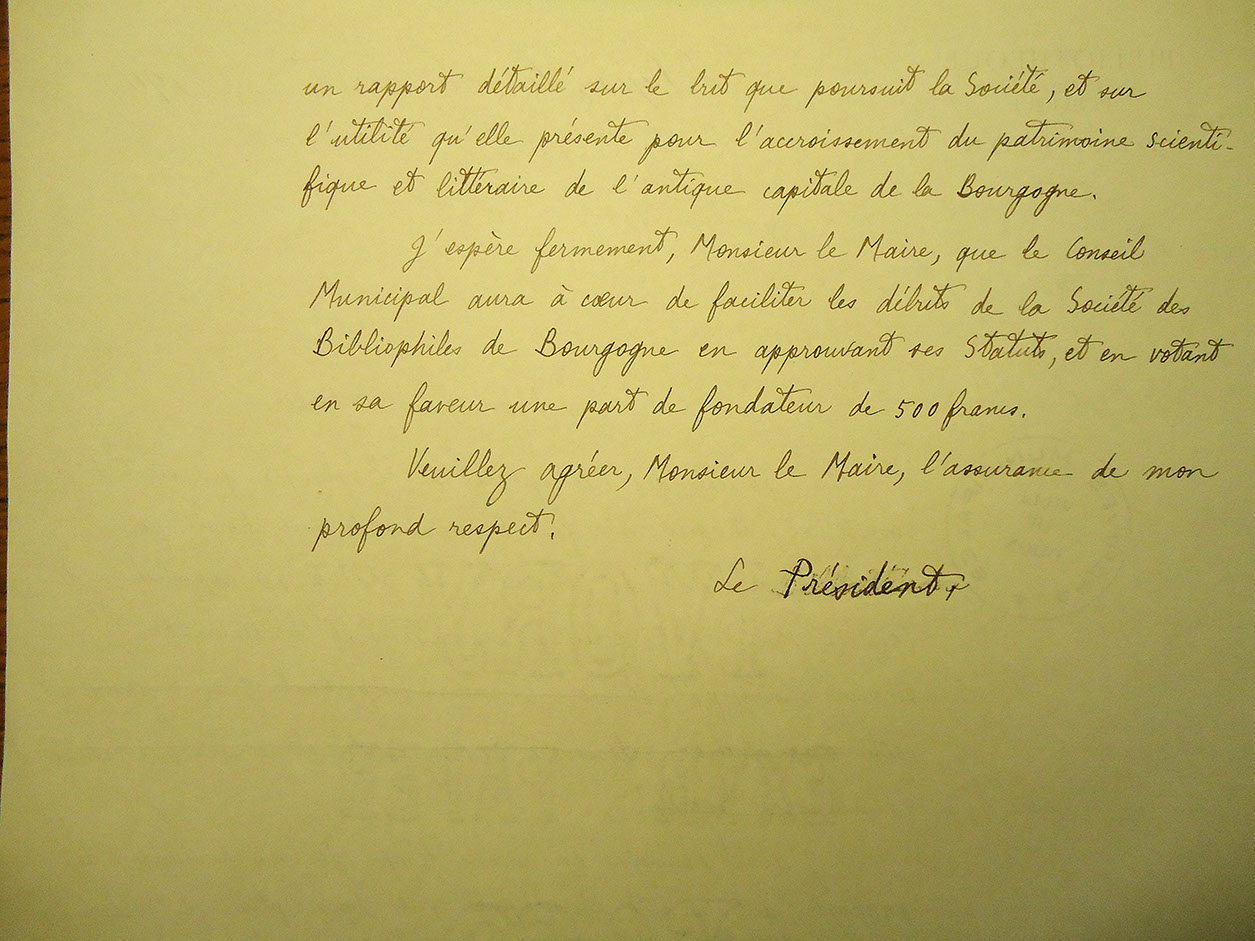 un rapport détaillé sur le but que poursuit la Société, et sur
l'utilité qu'elle présente pour l'accroissement du patrimoine scienti-
fique et littéraire de l'antique capitale de la Bourgogne.
J'espère fermement, Monsieur le Maire, que le Conseil
Municipal aura à cœur de faciliter les débuts de la Société des
Bibliophiles de Bourgogne en approuvant ses Statuts, et en votant
en sa faveur une part de fondateur de 500 francs.
Veuillez agréer, Monsieur le Maire, l'assurance de mon
profond respect.
Le Président,